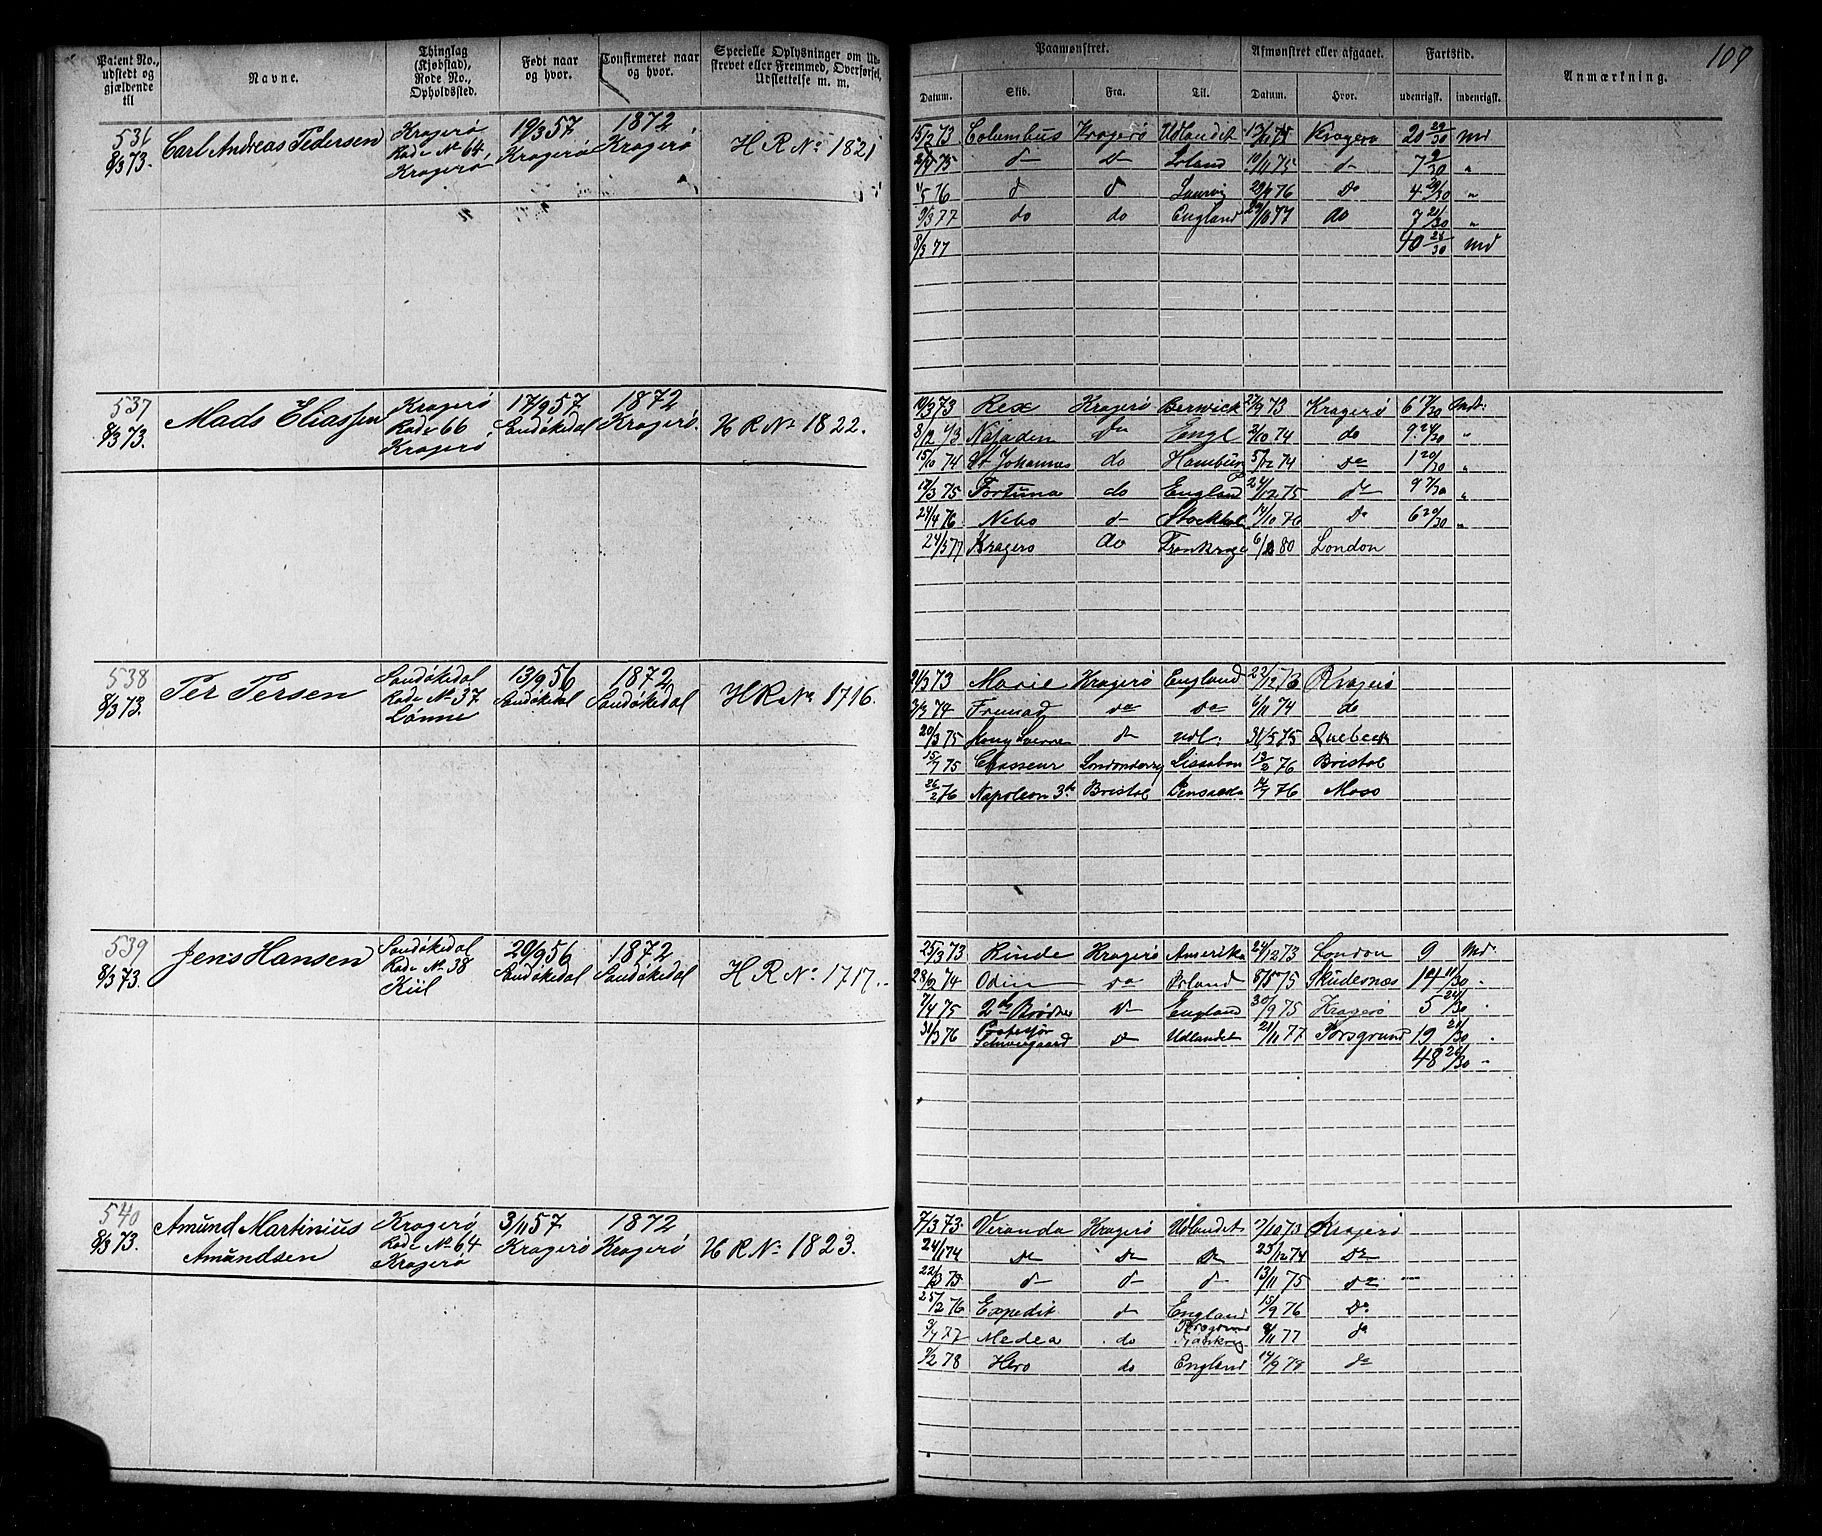 109
Patent No., udstedt og gjældende til
Navne.
Thinglag (Kjøbstad), Rode No., Opholdssted.
Født naar og hvor.
Confirmeret naar og hvor.
Specielle Oplysninger om Udskrevet eller Fremmed, Overførsel, Udslettelse m. m.
Paamønstret.
Afmønstret eller afgaaet.
Fartstid.
Anmærkning.
Datum. Skib. Fra. Til. Datum. Hvor. udenrigsk. indenrigsk.
536 8/3 73. Carl Andreas Pedersen Kragerø Rode No 64 Kragerø 19/3 57 Kragerø 1872 Kragerø H R No 1821
15/2 73 Columbus Kragerø Udlandet Kragerø 20 29/30 Md
75 d d 10/11 75 d 7 9/30 "
76 d d Laurvig 29/9 76 Do 4 29/30 "
9/3 77 do do England 29/11 77 do 7 21/30 "
8/3 77 40 28/30 Md
537 8/3 73. Mads Eliassen Kragerø Rode 66 Kragerø 17/9 57 Sandøkedal 1872 Kragerø. H R No 1822.
19/3 73 Rex Kragerø Berwick 27/9 73 Kragerø 6 17/30 Mdr
8/12 73 Najaden Do Engl 2/10 74 do 9 24/30 "
15/10 74 St Johannes do Hamburg 5/12 74 Do 1 20/30 "
17/3 75 Fortuna do England 24/12 75 do 9 7/30 "
24/4 76 Nebo d Stockhol 14/10 76 Do 6 20/30 "
24/3 77 Kragerø do Frankrige 80 London
538 8/3 73. Per Persen Sandøkedal Rode No 37 Lønne 13/9 56 Sandøkedal 1872 Sandøkedal H R No 1716.
21/3 73 Marie Kragerø England 22/12 73 Kragerø
74 Fremad do do 6/11 74 do
20/3 75 Kong Sverre d udl. 31/5 75 Quebeck
15/7 75 Chasseur Londonderry Lissabon 13/2 76 Bristol
26/2 76 Napoleon 3de Bristol Pensacola 76 Moss
539 8/3 73. Jens Hansen Sandøkedal Rode No 38 Kiil 29/9 56 Sandøkedal 1872 Sandøkedal H R No 1717.
25/3 73 Rinde Kragerø Amerika 24/12 73 London 9 Md
28/2 74 Odin do 8/5 75 Skudernæs 14 11/30 "
7/4 75 2de Brødre d England 30/9 75 Kragerø 5 24/30 "
31/3 76 Professor Schweigaard d Udlandet 21/11 77 Porsgrund 19 21/30 "
48 26/30 "
540 8/3 73. Amund Martinius Amundsen Kragerø Rode No 64 Kragerø 3/11 57 Kragerø 1872 Kragerø H R No 1823.
7/3 73 Veranda Kragerø Udlandet 7/10 73 Kragerø
24/1 74 do do do 23/12 74 do
22/3 75 d d d 13/11 75 do
25/2 76 Expedit d England 15/9 76 Do
77 Medea do 9/11 77 do
9/2 78 Hero do England 14/9 78 do